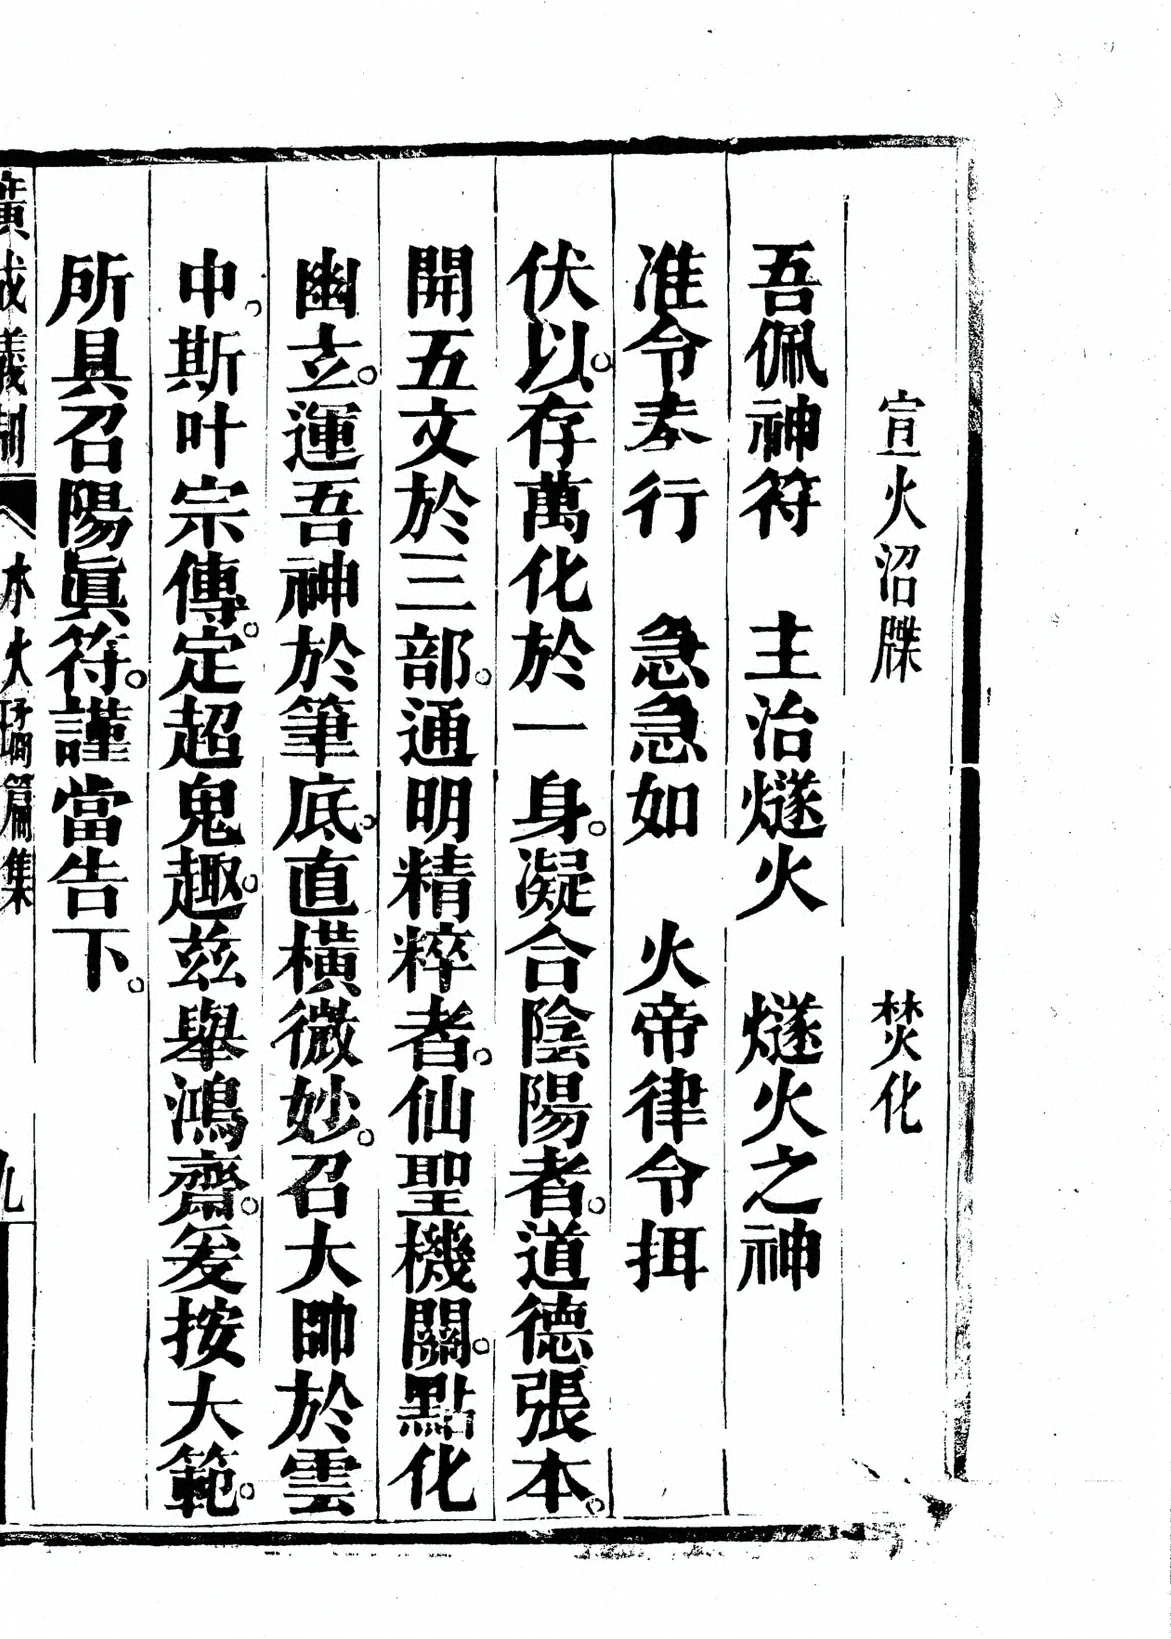 宣火沼牒　焚化
吾佩神符　主治燧火　燧火之神
准令奉行　急急如　火帝律令揖
伏以。存萬化於一身。凝合陰陽者。道德張本。
開五文於三部。通明精粹者。仙聖機關。點化
幽立。運吾神於筆底。直橫微妙。召大帥於雲
中。斯叶宗傳。定超鬼趣。茲舉鴻齋。爰按大範。
所具召陽眞符。謹當告下。
廣成儀制　水火璚篇集　九